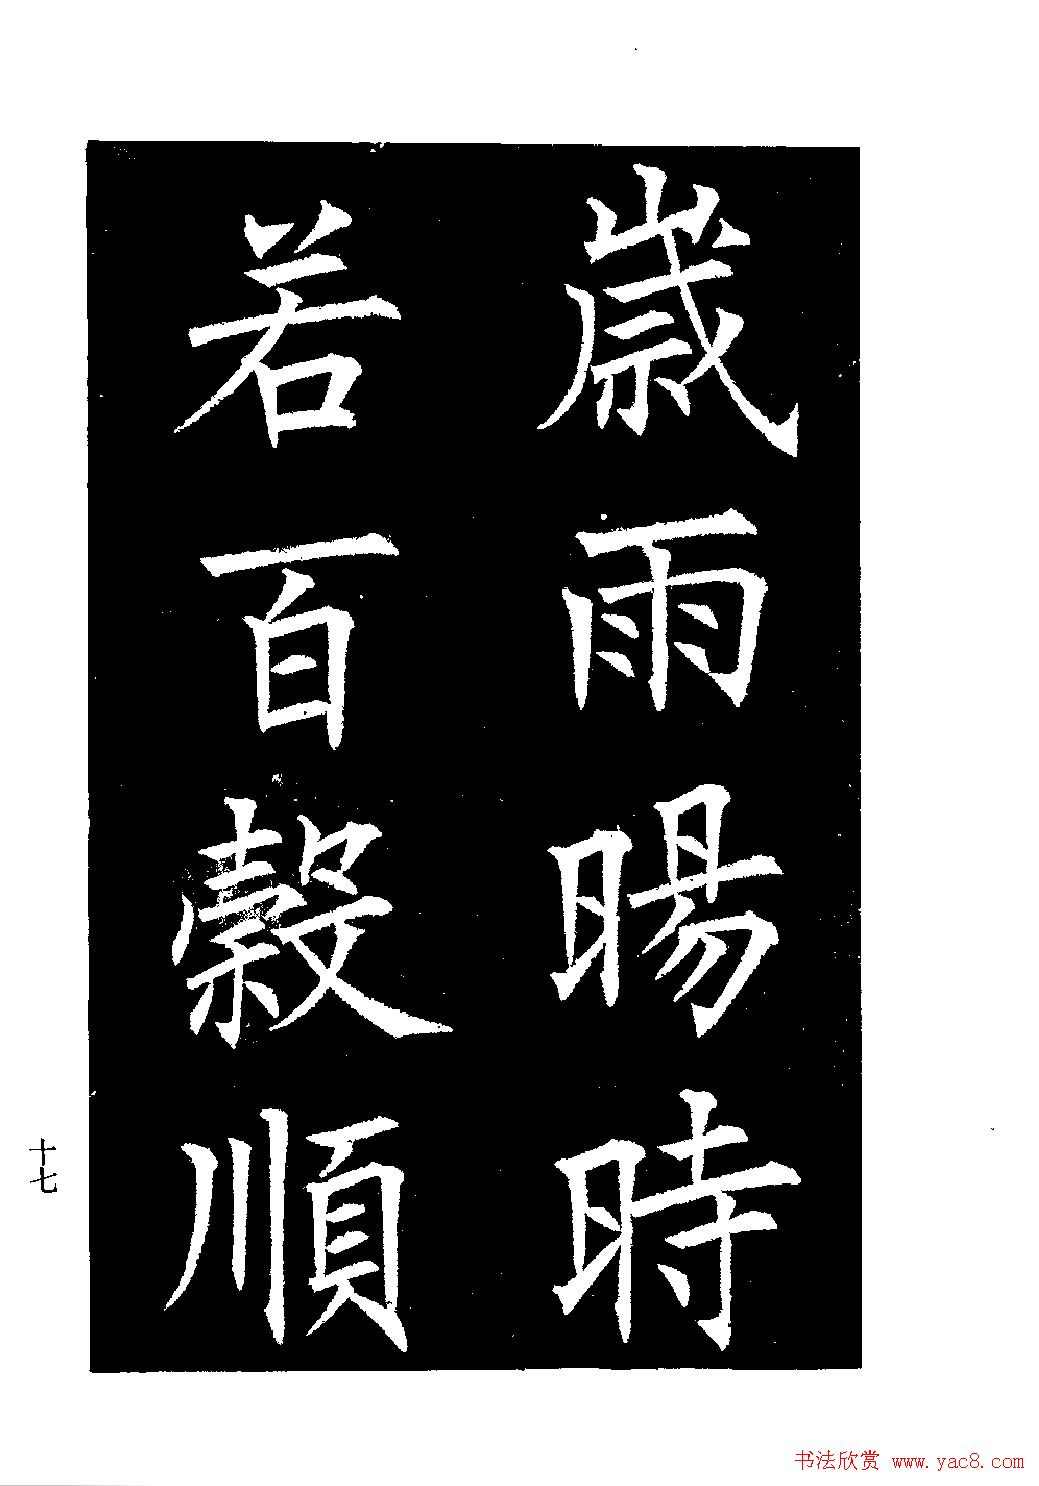 歲雨暘時
若百穀順
十七
书法欣赏 www.yac8.com